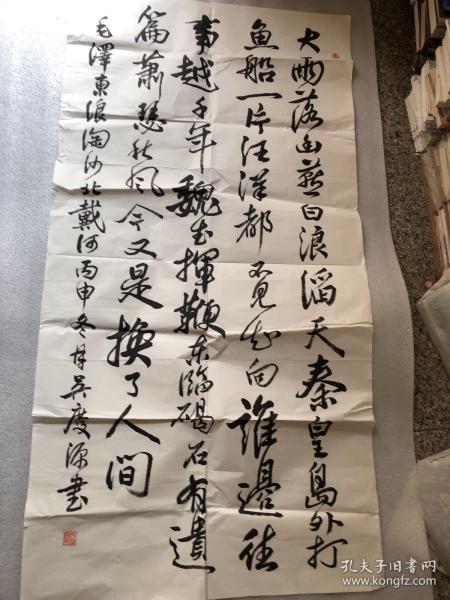 大雨落幽燕白浪滔天秦皇島外打
魚船一片汪洋都不見知向誰邊往
事越千年魏武揮鞭東臨碣石有遺
篇蕭瑟秋風今又是換了人間
毛澤東浪淘沙北戴河丙申冬月吴慶源書
孔夫子旧书网
www.kongfz.com